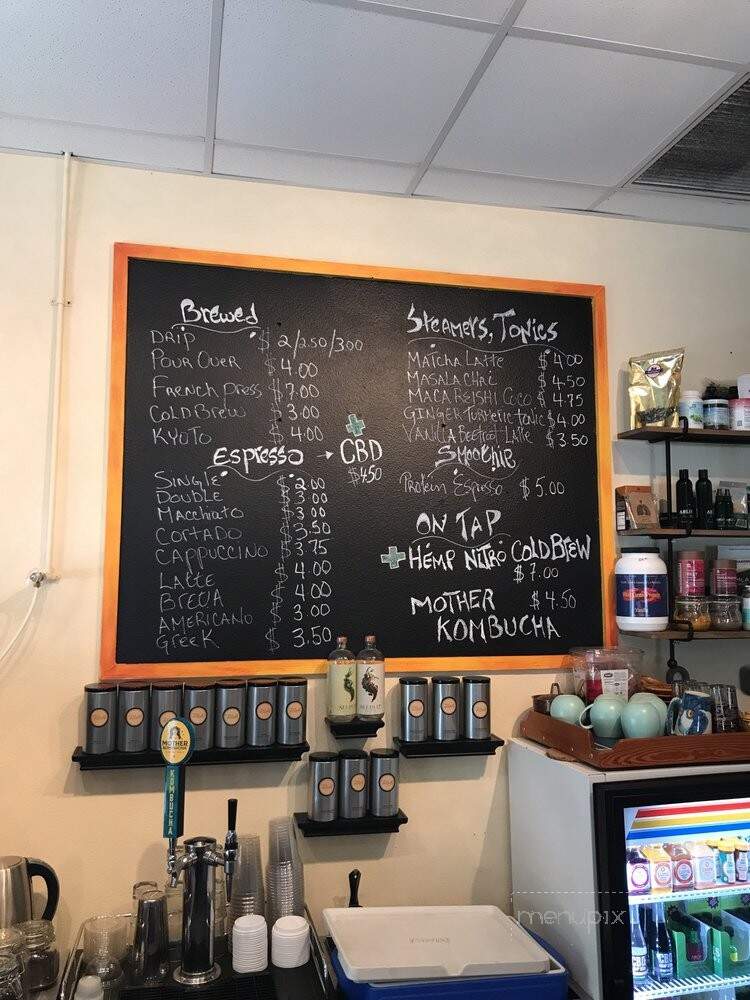 Brewed
DRIP $ 2/2.50/3.00
POUR OVER $ 4.00
FRENCH PRESS $ 7.00
COLD BREW $ 3.00
KYOTO $ 4.00
ESPRESSO → CBD
$4.50
SINGLE $ 2.00
DOUBLE $ 3.00
Macchiato $ 3.00
CORTADO $ 3.50
CAPPUCCINO $ 3.75
LATTE $ 4.00
BREVA $ 4.00
AMERICANO $ 3.00
GREEK $ 3.50
STEAMERS, TONICS
MATCHA LATTE $4.00
MASALA CHAI $ 4.50
MACA REISHI COCO $ 4.75
GINGER TURMERIC TONIC $4.00
VANILLA BEETROOT LATTE $ 3.50
SMOOTHIE
Protein Espresso $ 5.00
ON TAP
+ HEMP NITRO COLD BREW
$7.00
MOTHER $ 4.50
KOMBUCHA
MOTHER
KOMBUCHA
menupix